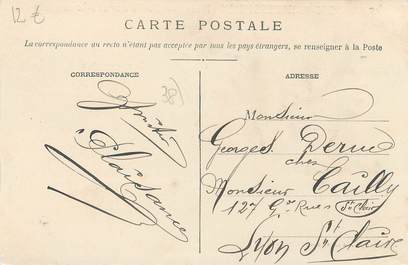 12 €
CARTE POSTALE
La correspondance au recto n'étant pas acceptée par tous les pays étrangers, se renseigner à la Poste
CORRESPONDANCE
38
ADRESSE
Monsieur
Georges
chez
Monsieur Cailly
127 Gde Rues St Claire
Lyon St Claire